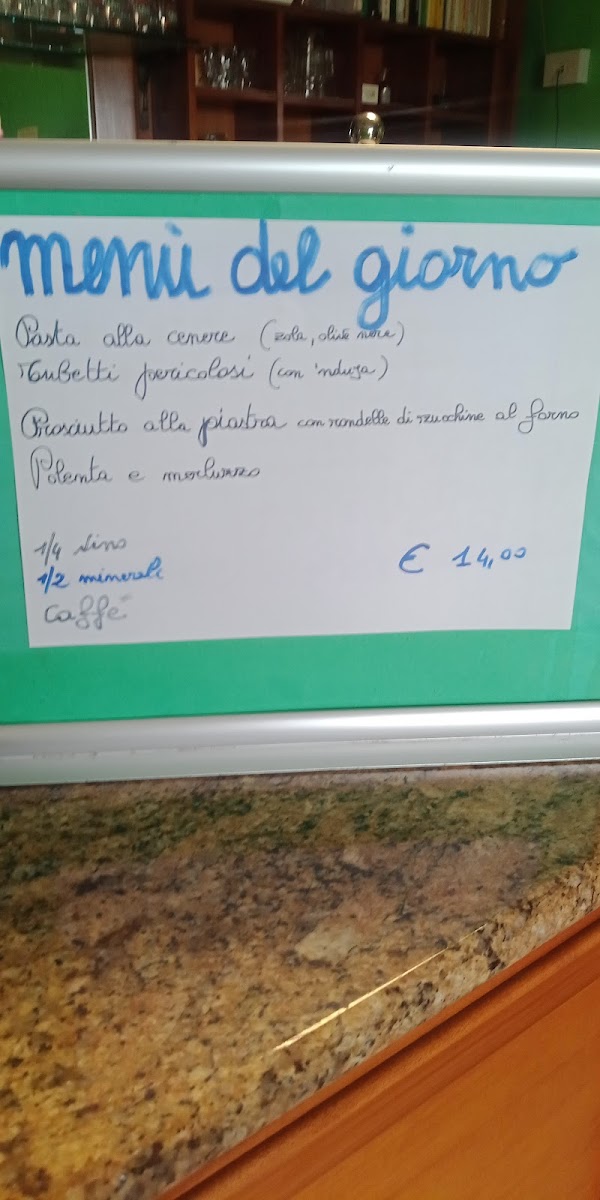 menù del giorno
Pasta alla cenere (zola, olive nere)
Tubetti pericolosi (con 'nduja)
Prosciutto alla piastra con rondelle di zucchine al forno
Polenta e merluzzo
1/4 vino
1/2 minerale
€ 14,00
caffè